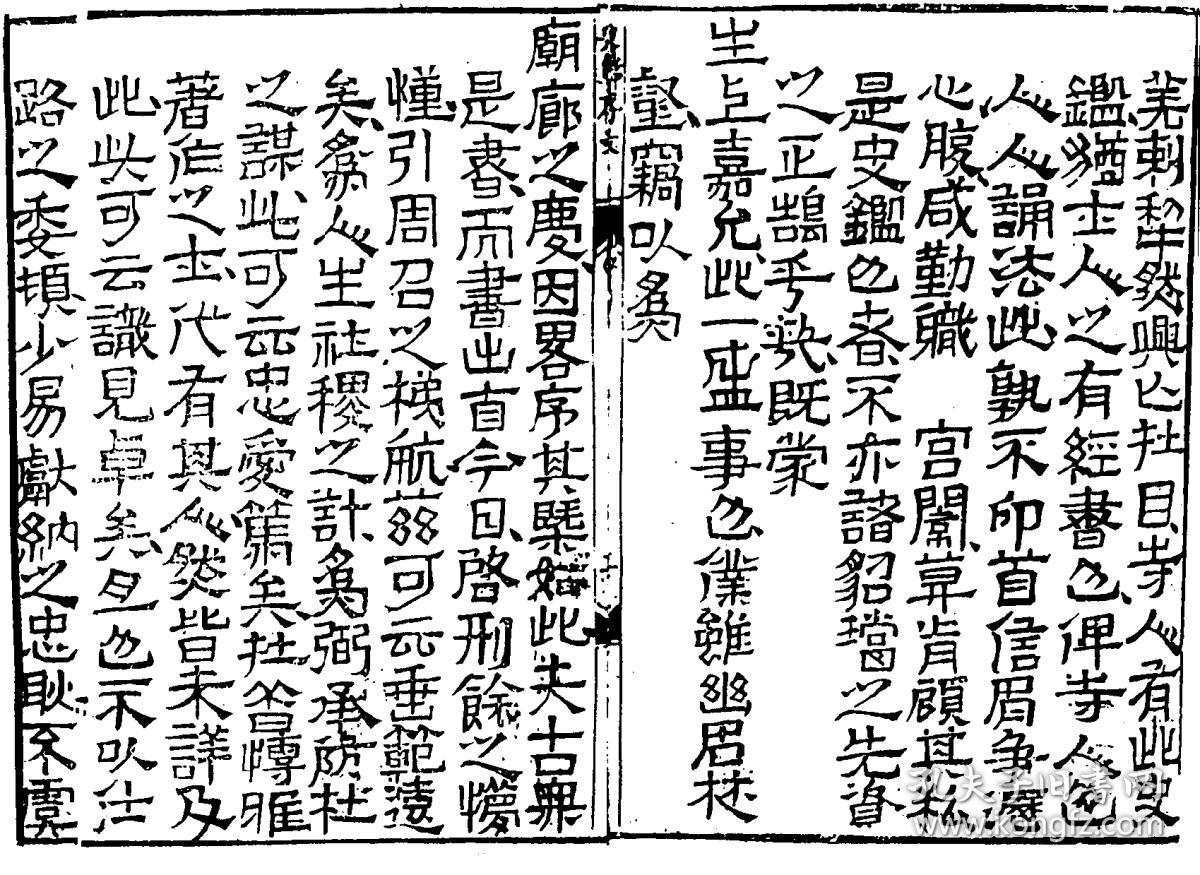 美刺犁然興亡扗目寺人有此史
鑑猶士人之有經書也俾寺人
人人誦法此孰不卬首信眉爭濯
心腹咸勤職 宮闈 肯顧其私
是史鑑也者不亦諸貂璫之先資
之正鵠乎哉既蒙
主上嘉允此一盛事也僕雖幽居林
壑竊以為
廟廊之慶因畧序其槩始此夫古無
是書而書出自今日啓刑餘之懞
憧引周召之梯航茲可云垂範遠
矣為人主社稷之計為弼承防杜
之謀此可云忠愛篤矣扗昔博雅
著作之士代有其人然皆未詳及
此此可云識見卓矣且也不以仕
路之委頓少易獻納之忠耿不虞
孔夫子旧书网
www.kongfz.com